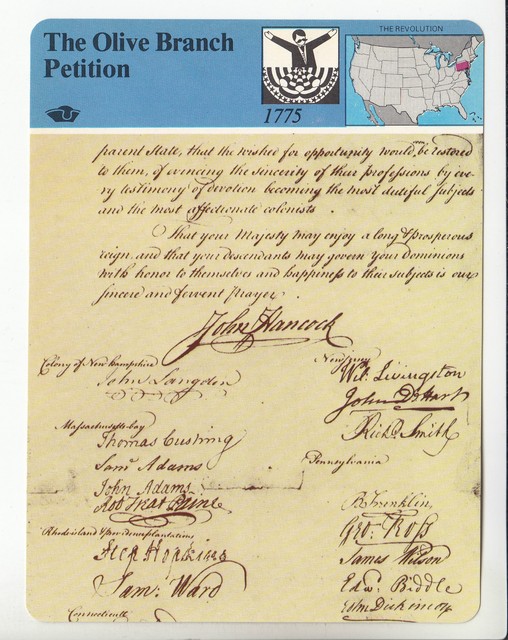 The Olive Branch
Petition
1775
THE REVOLUTION
parent State, that the wished for opportunity would be restored
to them, of evincing the sincerity of their professions by eve
ry testimony of devotion becoming the most dutiful subjects
and the most affectionate colonists.
That your Majesty may enjoy a long & prosperous
reign, and that your descendants may govern your Dominions
with honor to themselves and happiness to their subjects is our
sincere and fervent prayer.
John Hancock
Colony of New Hampshire
John Langdon
Massachusetts bay
Thomas Cushing
Saml Adams
John Adams
Robt Treat Paine
Rhode island & providence plantations
Step Hopkins
Sam: Ward
Connecticutt
New Jersey
Wil: Livingston
John D Hart
Richd Smith
Pennsylvania
B Franklin
Geo: Ross
James Wilson
Edwd Biddle
John Dickinson